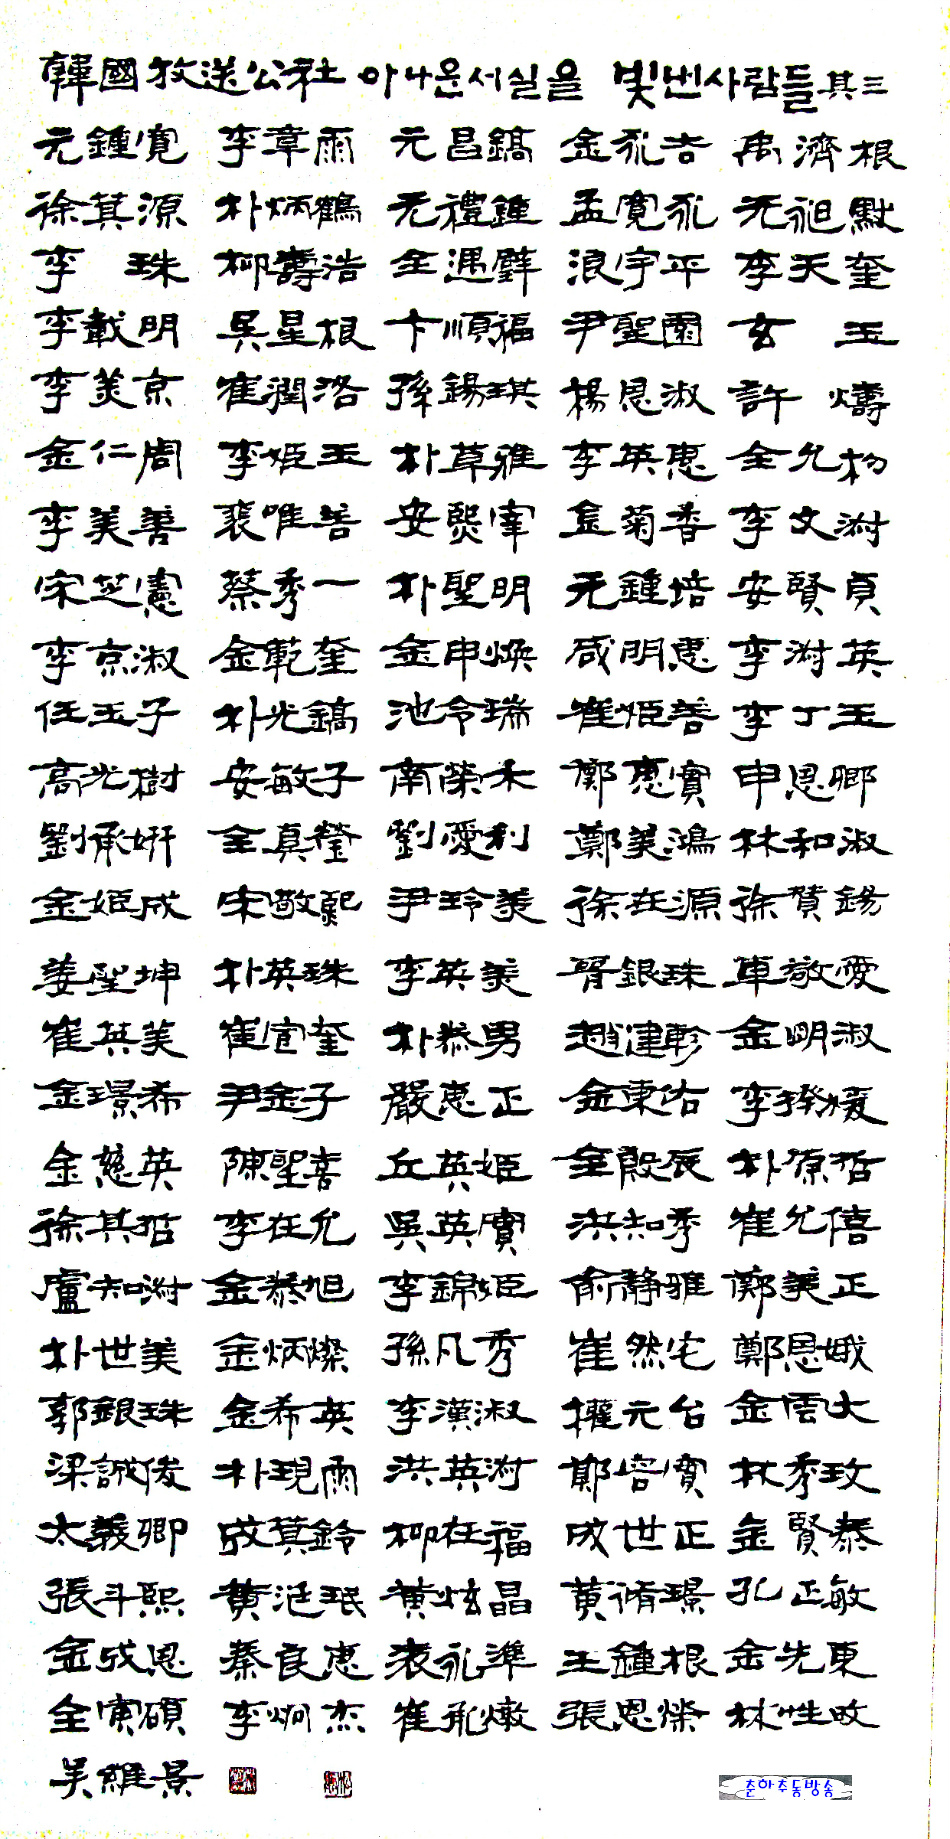 韓國放送公社 아나운서실을 빛낸사람들 其三
元鍾寬 李章雨 元昌鎬 金永吉 禹濟根
徐其源 朴炳鶴 元禮鍾 孟寬永 元昶默
李珠 柳壽浩 全遇壁 浪宇平 李天奎
李載明 吳星根 卞順福 尹聖園 玄玉
李美京 崔潤洛 孫錫琪 楊恩淑 許燾
金仁周 李姬玉 朴草雅 李英惠 全允杓
李美善 裵唯善 安熙宰 金菊香 李文澍
宋芝憲 蔡秀一 朴聖明 元鍾培 安賢貞
李京淑 金範奎 金申煥 咸明惠 李澍英
任玉子 朴光鎬 池令瑞 崔姬善 李丁玉
高光樹 安敏子 南榮禾 鄭惠實 申恩卿
劉承姸 全眞瑩 劉愛利 鄭美鴻 林和淑
金姬成 宋敬熙 尹玲美 徐在源 徐贊錫
姜聖坤 朴英珠 李英美 胥銀珠 車敬愛
崔英美 崔宣奎 朴泰男 趙建軫 金明淑
金璟希 尹金子 嚴惠正 金東佑 李揆媛
金慈英 陳聖喜 丘英姬 全殷辰 朴原哲
徐其哲 李在允 吳英實 洪知秀 崔允僖
盧知澍 金泰旭 李錦姬 兪靜雅 鄭美正
朴世美 金炳燦 孫凡秀 崔然宅 鄭恩娥
郭銀珠 金希英 李漢淑 權元台 金雲大
梁誠俊 朴現雨 洪英澍 鄭容實 林秀玟
太義卿 成萁鈴 柳在福 成世正 金賢泰
張斗熙 黃泟珉 黃炫晶 黃脩璟 孔正敏
金成恩 秦良惠 表永準 王鍾根 金先東
全寅碩 李炯杰 崔承燉 張恩榮 林性旼
吳維景
춘하추동방송